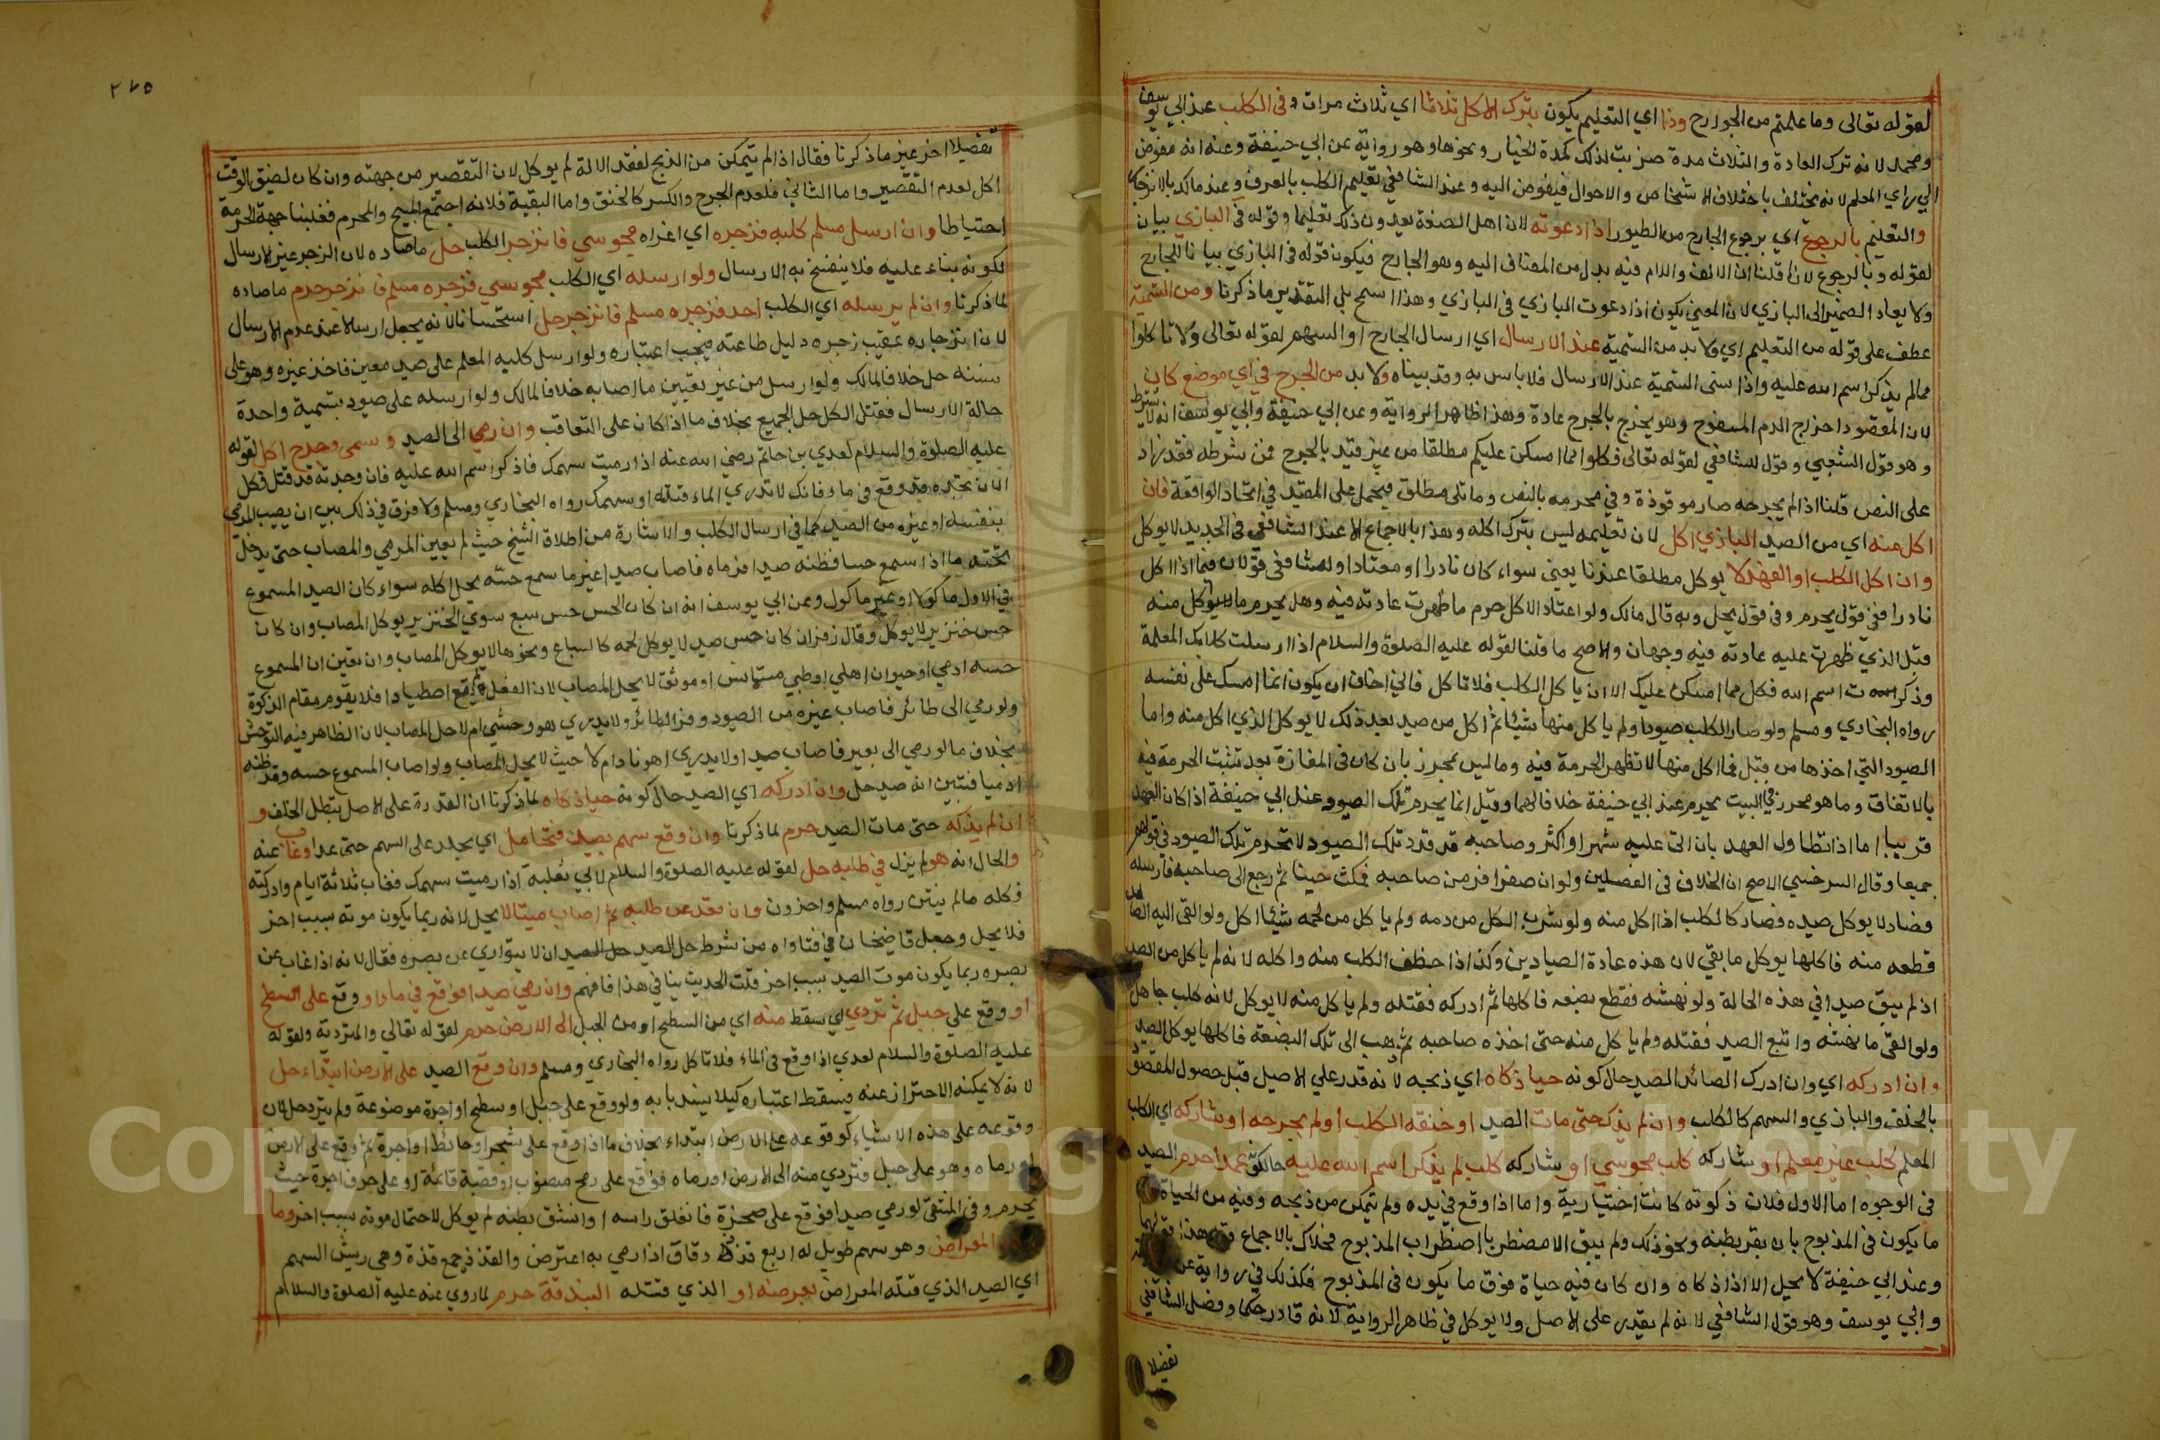 لقوله تعالى وما علمتم من الجوارح وذا اي التعليم يكون بترك الاكل ثلاثا اي ثلاث مرات وفي الكلب عند ابي يوسف
ومحمد لانه ترك العادة والثلاث مدة ضربت لذلك كمدة الخيار ونحوها وهو رواية عن ابي حنيفة وعنه انه مفوض
الى راي المعلم لانه يختلف باختلاف الاشخاص والاحوال فيفوض اليه وعند الشافعي تعليم الكلب بالعرف وعند مالك بالانزجار
والتعليم بالرجوع اي برجوع الجارح من الطيور اذا دعوته لان اهل الصنعة يعدون ذلك تعليما وقوله في البازي بيان
لقوله وبالرجوع لانا قلنا ان الالف واللام فيه بدل من المضاف اليه وهو الجارح فيكون قوله في البازي بيانا للجارح
ولا يعاد الضمير الى البازي لان المعنى يكون اذا دعوت البازي في البازي وهذا اسمح بل التقدير ما ذكرنا ومن التسمية
عطف على قوله من التعليم اي ولا بد من التسمية عند الارسال اي ارسال الجارح او السهم لقوله تعالى ولا تاكلوا
مما لم يذكر اسم الله عليه واذا نسي التسمية عند الارسال فلا باس به وقد بيناه ولا بد من الجرح في اي موضع كان
لان المقصود اخراج الدم المسفوح وهو يخرج بالجرح عادة وهذا ظاهر الرواية وعن ابي حنيفة وابي يوسف انه لا يشترط
وهو قول الشعبي وقول للشافعي لقوله تعالى فكلوا مما امسكن عليكم مطلقا من غير قيد بالجرح فمن شرطه فقد زاد
على النص قلنا اذا لم يجرحه صار موقوذة وفي محرمه بالنص وما تلي مطلق فيحمل على المقيد في اتحاد الواقعة فان
اكل منه اي من الصيد البازي اكل لان تعليمه ليس بترك اكله وهذا بالاجماع الا عند الشافعي في الجديد لا يوكل
وان اكل الكلب او الفهد لا يوكل مطلقا عندنا يعني سواء كان نادرا او معتادا وللشافعي قولان فيما اذا اكل
نادرا ففي قول يحرم وفي قول يحل وبه قال مالك ولو اعتاد الاكل حرم ما ظهرت عادته فيه وهل يحرم ما لا يوكل منه
قبل الذي ظهرت عليه عادته فيه وجهان والاصح ما قلنا لقوله عليه الصلوة والسلام اذا ارسلت كلابك المعلمة
وذكرت اسم الله فكل مما امسكن عليك الا ان ياكل الكلب فلا تاكل فاني اخاف ان يكون انما امسك على نفسه
رواه البخاري ومسلم ولو صاد الكلب صيودا ولم ياكل منها شيئا ثم اكل من صيد بعد ذلك لا يوكل الذي اكل منه واما
الصيود التي اخذها من قبل فما اكل منها لا تظهر الحرمة فيه وما ليس بمحرز بان كان في المفازة بعد تثبت الحرمة فيه
بالاتفاق وما هو محرز في البيت يحرم عند ابي حنيفة خلافا لهما وقيل انما يحرم تلك الصيود عند ابي حنيفة اذا كان العهد
قريبا اما اذا تطاول العهد بان اتى عليه شهر او اكثر وصاحبه قد قدد تلك الصيود لا تحرم تلك الصيود في قولهم
جميعا وقال السرخسي الاصح ان الخلاف في الفصلين ولو ان صقرا فر من صاحبه فمكث حينا ثم رجع الى صاحبه فارسله
فصاد لا يوكل صيده فصار كالكلب اذا اكل منه ولو شرب الكلب من دمه ولم ياكل من لحمه شيئا اكل ولو القى اليه الصائد
قطعه منه فاكلها يوكل ما بقي لان هذه عادة الصيادين وكذا اذا خطف الكلب منه واكله لانه لم ياكل من الصيد
اذ لم يبق صيدا في هذه الحالة ولو نهشه فقطع بضعه فاكلها ثم ادركه فقتله ولم ياكل منه لا يوكل لانه كلب جاهل
ولو القى ما نهشه واتبع الصيد فقتله ولم ياكل منه حتى اخذه صاحبه ثم ذهب الى تلك البضعة فاكلها يوكل الصيد
وان ادركه اي وان ادرك الصائد الصيد حال كونه حيا ذكاه اي ذبحه لانه قدر علي الاصل قبل حصول المقصود
بالخلف والبازي والسهم كالكلب وان لم يذكه حتى مات الصيد او خنقه الكلب او لم يجرحه او شاركه اي الكلب
المعلم كلب غير معلم او شاركه كلب مجوسي او شاركه كلب لم يذكر اسم الله عليه حال كونه عمدا حرم الصيد
في الوجوه اما الاول فلان ذكوته كانت اختيارية واما اذا وقع في يده ولم يتمكن من ذبحه وفيه من الحياة
ما يكون في المذبوح بان بقر بطنه ونحو ذلك ولم يبق الا مضطربا اضطراب المذبوح فحلال بالاجماع وقيل هذا قولهما
وعند ابي حنيفة لا يحل الا اذا ذكاه وان كان فيه حياة فوق ما يكون في المذبوح فكذلك في رواية عن
وابي يوسف وهو قول الشافعي لانه لم يقدر على الاصل ولا يوكل في ظاهر الرواية لانه قادر حكما وفصل الشافعي
تفصيلا
٢٦٥
تفصيلا اخر غير ما ذكرنا فقال اذا لم يتمكن من الذبح لفقد الالة لم يوكل لان التقصير من جهته وان كان لضيق الوقت
اكل لعدم التقصير واما الثاني فلعدم الجرح والكسر كالخنق واما البقية فلانه اجتمع المبيح والمحرم فغلبنا جهة الحرمة
احتياطا وان ارسل مسلم كلبه فزجره اي اغراه مجوسي فانزجر الكلب حل ما صاده لان الزجر غير الارسال
لكونه بناء عليه فلا ينفسخ به الارسال ولو ارسله اي الكلب مجوسي فزجره مسلم فانزجر حرم ما صاده
لما ذكرنا وان لم يرسله اي الكلب احد فزجره مسلم فانزجر حل استحسانا لانه يجعل ارسالا عند عدم الارسال
لان انزجاره عقيب زجره دليل طاعته فيجب اعتباره ولو ارسل كلبه المعلم على صيد معين فاخذ غيره وهو على
سننه حل خلافا لمالك ولو ارسل من غير تعيين ما اصابه خلافا لمالك ولو ارسله على صيود بتسمية واحدة
حالة الارسال فقتل الكل حل الجميع بخلاف ما اذا كان على التعاقب وان رمى الى الصيد وسمى وجرح اكل لقوله
عليه الصلوة والسلام لعدي بن حاتم رضي الله عنه اذا رميت سهمك فاذكر اسم الله عليه فان وجدته قد قتل فكل
الا ان تجده قد وقع في ماء فانك لا تدري الماء قتله او سهمك رواه البخاري ومسلم ولا فرق في ذلك بين ان يصيب المرمي
بنفسه او غيره من الصيد كما في ارسال الكلب والاشارة من اطلاق الشيخ حيث لم يعين المرمي والمصاب حتى يدخل
تحته ما اذا سمع حسا فظنه صيدا فرماه فاصاب صيدا غير ما سمع حسه يحل اكله سواء كان الصيد المسموع
في الاول ماكولا او غير ماكول وعن ابي يوسف انه ان كان الحس حس سبع سوى الخنزير يوكل المصاب وان كان
حس خنزير لا يوكل وقال زفر ان كان حس صيد لا يوكل لحمه كالسباع ونحوها لا يوكل المصاب وان تعين ان المسموع
حسه ادمي او حيوان اهلي او ظبي مستانس او موثوق لا يحل المصاب لان الفعل لم يقع اصطيادا فلا يقوم مقام الذكوة
ولو رمى الى طائر فاصاب غيره من الصيود وفر الطائر ولا يدري هو وحشي ام لا حل المصاب لان الظاهر فيه التوحش
بخلاف ما لو رمى الى بعير فاصاب صيدا ولا يدري اهو ناد ام لا حيث لا يحل المصاب ولو اصاب المسموع حسه وقد ظنه
ادميا فتبين انه صيد حل وان ادركه اي الصيد حال كونه حيا ذكاه لما ذكرنا ان القدرة على الاصل تبطل الخلف و
ان لم يذكه حتى مات الصيد حرم لما ذكرنا وان وقع سهم بصيد فتحامل اي يجلد على السهم حتى عدا وغاب عنه
والحال انه هو لم يزل في طلبه حل لقوله عليه الصلوة والسلام لابي ثعلبة اذا رميت سهمك فغاب ثلاثة ايام وادركته
فكله ما لم ينتن رواه مسلم واخرون وان قعد عن طلبه ثم اصاب ميتا لا يحل لانه ربما يكون موته سبب اخر
فلا يحل وجعل قاضيخان في فتاواه من شرط حل الصيد حل الصيد ان لا يتوارى عن بصره فقال لانه اذا غاب عن
بصره ربما يكون موت الصيد بسبب اخر قلت الحديث ينافي هذا فافهم وان رمى صيدا فوقع في ماء او وقع على السطح
او وقع على جبل ثم تردى اي سقط منه اي من السطح او من الجبل الى الارض حرم لقوله تعالى والمتردية ولقوله
عليه الصلوة والسلام لعدي اذا وقع في الماء فلا تاكل رواه البخاري ومسلم وان وقع الصيد على الارض ابتداء حل
لانه لا يمكنه الاحتراز عنه فيسقط اعتباره كيلا ينسد بابه ولو وقع على جبل او سطح او اجرة موضوعة ولم يتردد حل لان
وقوعه على هذه الاشياء كوقوعه على الارض ابتداء بخلاف ما اذا وقع على شجر او حائط او اجرة ثم وقع على الارض
او رماه وهو على جبل فتردى منه الى الارض او رماه فوقع على رمح منصوب او قصبة قائمة او على حرف اجرة حيث
يحرم وفي المنتقى لو رمى صيدا فوقع على صخرة فانفلق راسه او انشق بطنه لم يوكل لاحتمال موته بسبب اخر وما
المعراض وهو سهم طويل له اربع قذذ دقاق اذا رمي به اعترض والقذذ جمع قذة وهي ريش السهم
اي الصيد الذي قتله المعراض بعرضه او الذي قتله البندقة حرم لما روي عنه عليه الصلوة والسلام
Copyright © King Saud University